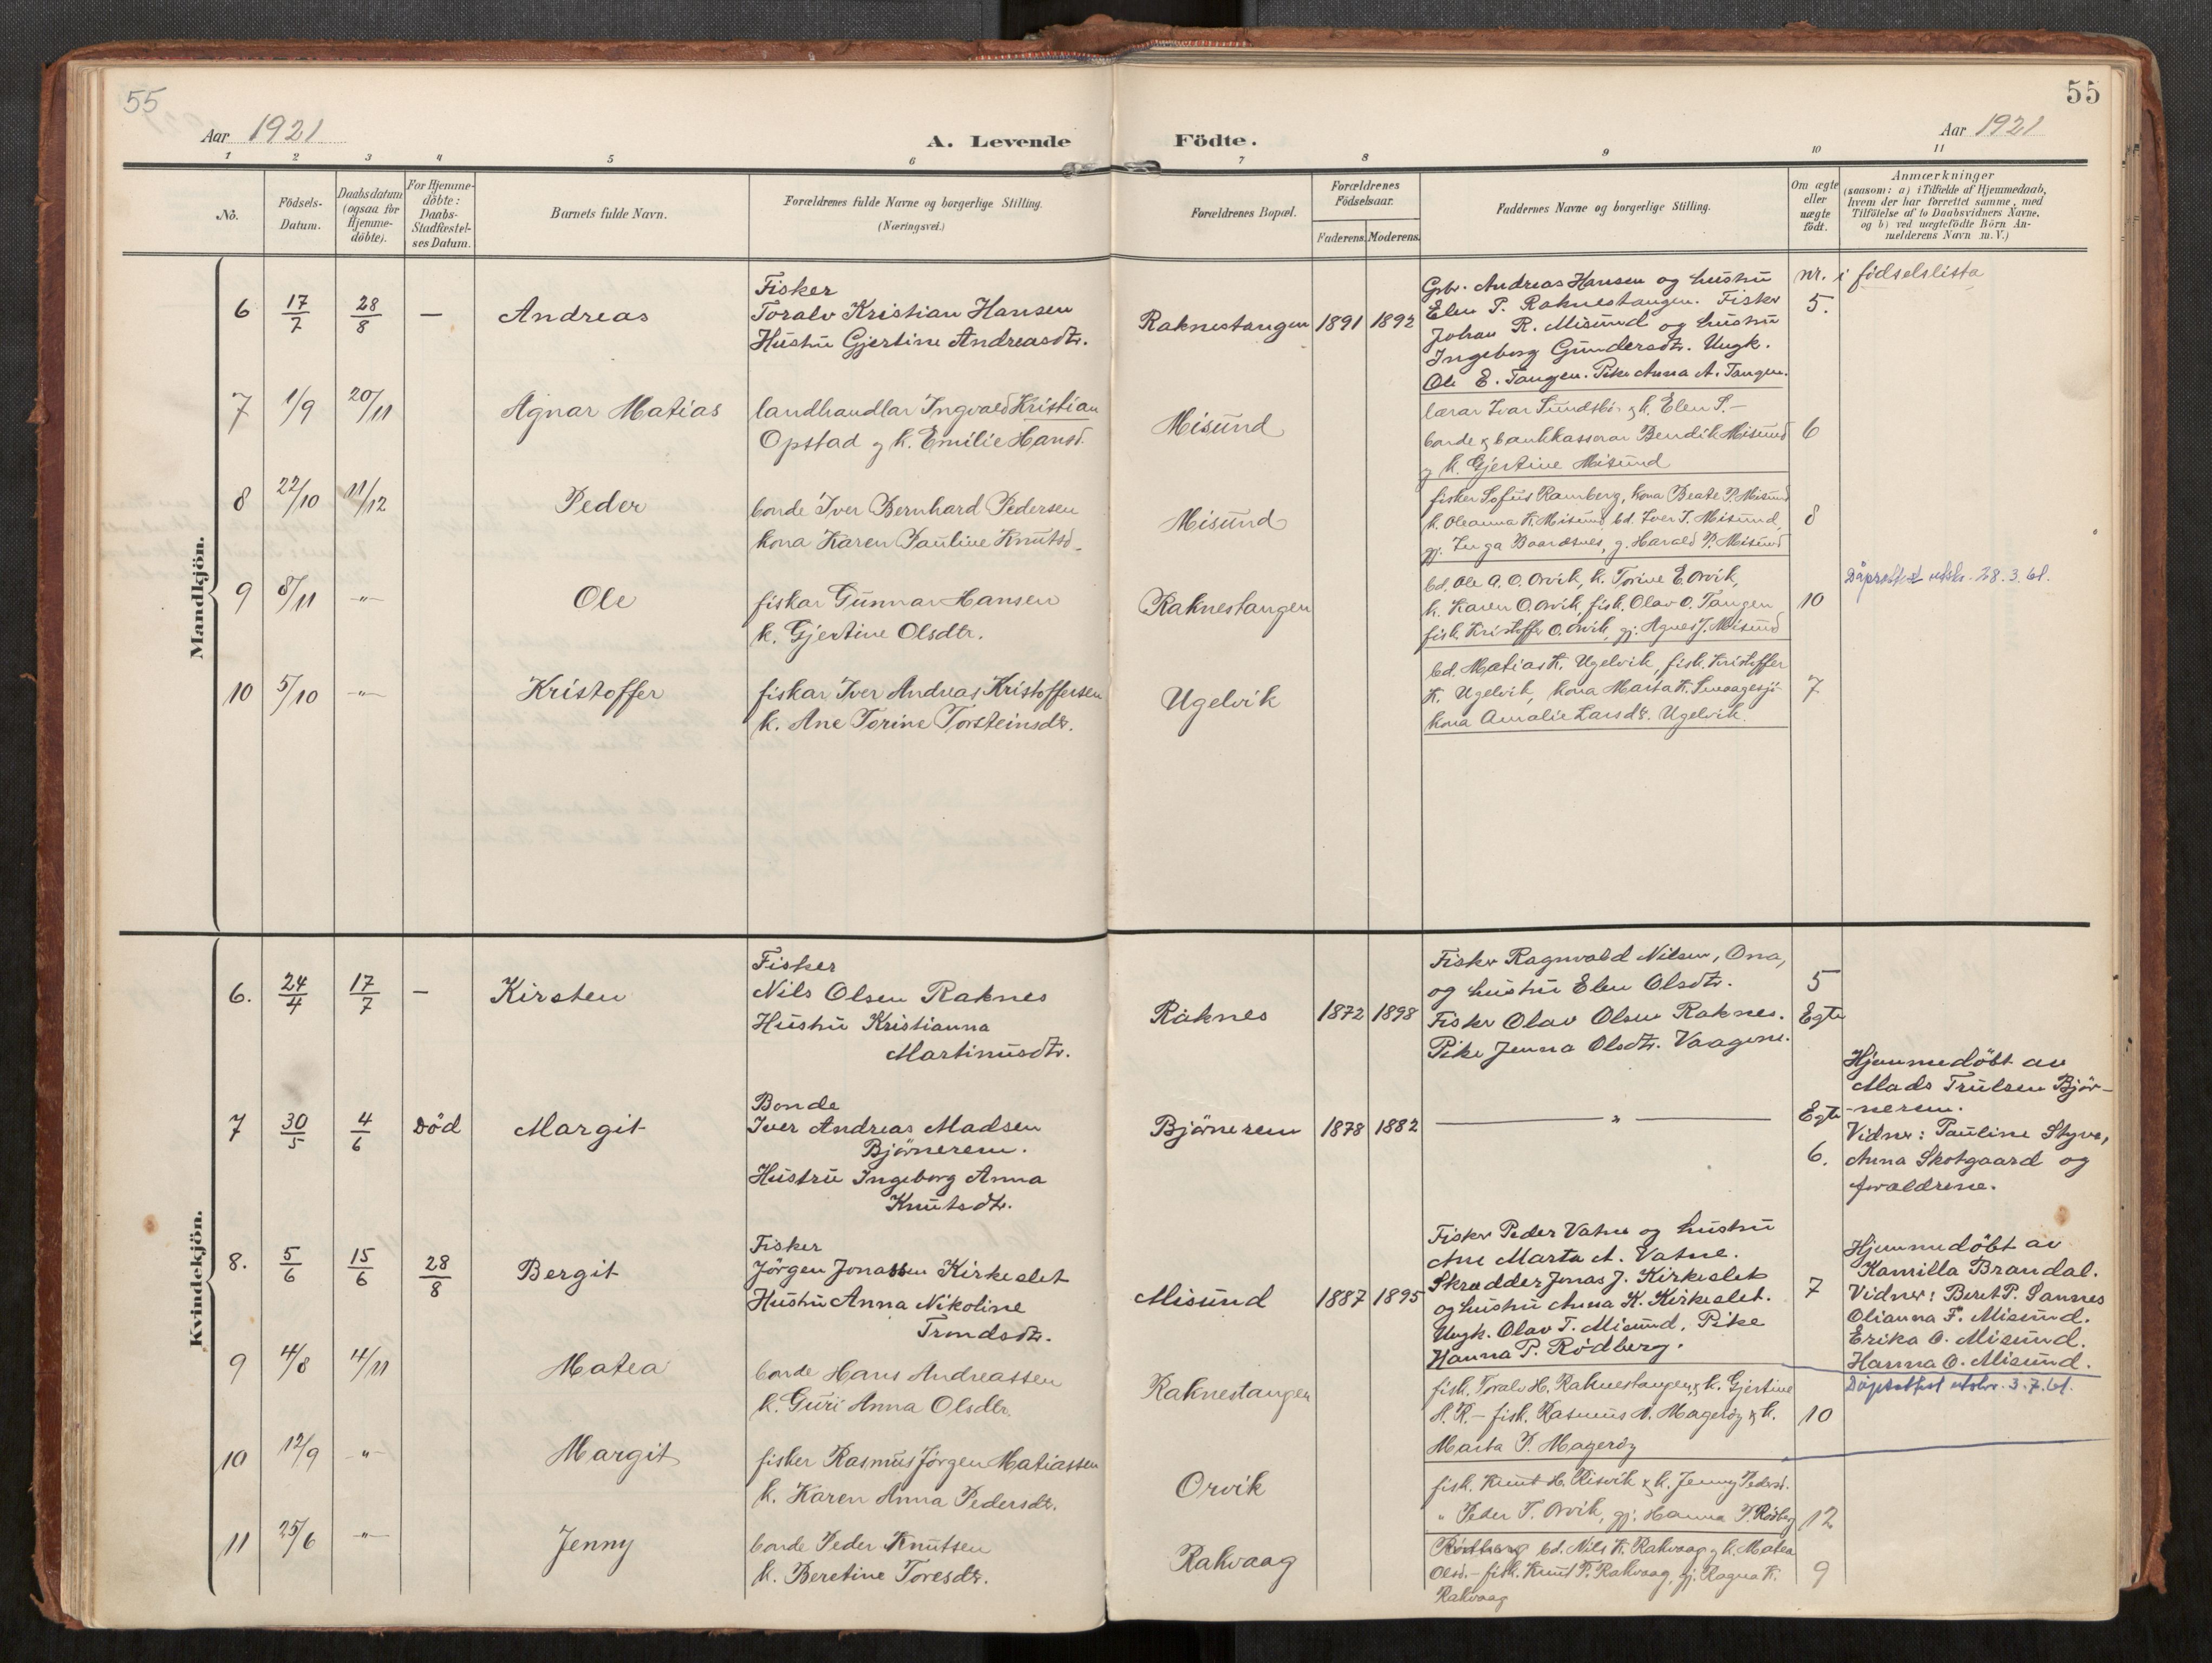 55
Aar 1921
A. Levende
1 2 3 4 5 6
No.
Födsels-
Datum.
Daabsdatum
(ogsaa for
Hjemme-
döbte).
For Hjemme-
döbte:
Daabs-
Stadfæstel-
ses Datum.
Barnets fulde Navn.
Forældrenes fulde Navne og borgerlige Stilling.
(Næringsvei.)
Mandkjön.
6 17/7 28/8 — Andreas
Fisker
Toralv Kristian Hansen
Hustru Gjertine Andreasdtr.
7 1/9 20/11 Agnar Matias
landhandlar Ingvald Kristian
Opstad og k. Emilie Hansd.
8 22/10 11/12 Peder
bonde Iver Bernhard Pedersen
kona Karen Pauline Knutsd.
9 8/11 -"- Ole
fiskar Gunnar Hansen
k. Gjertine Olsdtr.
10 5/10 -"- Kristoffer
fiskar Iver Andreas Kristoffersen
k. Ane Torine Torsteinsdtr.
Kvindekjön.
6. 24/4 17/7 — Kirsten
Fisker
Nils Olsen Raknes
Hustru Kristianna
Martinusdtr.
7 30/5 4/6 Död Margit
Bonde
Iver Andreas Madsen
Bjørnerem.
Hustru Ingeborg Anna
Knutsdtr.
8. 5/6 15/6 28/8 Bergit
Fisker
Jörgen Jonassen Kirkeslet
Hustru Anna Nikoline
Trondsdtr.
9 4/8 4/11 Matea
bonde Hans Andreassen
k. Guri Anna Olsdtr.
10 12/9 -"- Margit
fisker Rasmus Jørgen Matiassen
k. Karen Anna Pedersdtr.
11 25/6 -"- Jenny
bonde Peder Knutsen
k. Beretine Toresdtr.
55
Aar 1921
Födte.
7 8 9 10 11
Forældrenes Bopæl.
Forældrenes
Födselsaar.
Faderens. Moderens.
Faddernes Navne og borgerlige Stilling.
Om ægte
eller
uægte
födt.
Anmærkninger
(saasom: a) i Tilfælde af Hjemmedaab,
hvem der har forrettet samme, med
Tilföielse af to Daabsvidners Navne,
og b) ved uægtefödte Börn An-
melderens Navn m. V.)
Raknestangen 1891 1892
Gbr. Andreas Hansen og hustru
Elen P. Raknestangen. Fisker
Johan R. Misund og hustru
Ingeborg Gundersdtr. Ungk.
Ole E. Tangen. Pike Anna A. Tangen.
nr. i födselslista
5.
Misund
lærar Ivar Sundsbø & k. Elen S.-
bonde & bankkasserar Bendik Misund
og k. Gjertine Misund
6
Misund
fisker Sofus Ramberg, kona Beate P. Misund
k. Oleanna K. Misund, bd. Iver I. Misund,
gj. Inga Baardsnes, g. Harald P. Misund
8
Raknestangen
bd. Ole A. O. Orvik, k. Torine E. Orvik,
k. Karen O. Orvik, fisk. Olav O. Tangen
fisk. Kristoffer O. Orvik, gj. Agnes J. Misund
10
Dåpsattest utskr. 28.3.61.
Ugelvik
bd. Matias K. Ugelvik, fisk. Kristoffer
K. Ugelvik, kona Marta K. Smaagesjö
kona Amalie Larsdtr. Ugelvik.
7
Raknes 1872 1898
Fisker Ragnvald Nilsen, Ona,
og hustru Elen Olsdtr.
Fisker Olav Olsen Raknes.
Pike Jenna Olsdtr. Vaagene.
5
Egte
Bjørnerem 1878 1882
— " —
Egte
6.
Hjemmedöbt av
Mads Trulsen Bjør-
nerem.
Vidner: Pauline Styve,
Anna Skotgaard og
forældrene.
Misund 1887 1895
Fisker Peder Vatne og hustru
Ane Marta A. Vatne.
Skrædder Jonas J. Kirkeslet
og hustru Anna K. Kirkeslet.
Ungk. Olav T. Misund, Pike
Hanna P. Rødberg.
7
Hjemmedöbt av
Kamilla Brandal.
Vidner: Beret P. Sannes
Olianna F. Misund.
Erika O. Misund.
Hanna O. Misund.
Raknestangen
fisk. Toralv H. Raknestangen, & k. Gjertine
A. R. - fisk. Rasmus N. Magerøy & k.
Marta P. Magerøy
10
Dåpsattest utskr. 3.7.61.
Orvik
fisk. Knut H. Risvik & k. Jenny Pedersd.
" Peder T. Orvik, gj. Hanna P. Rødberg
12
Rakvaag
Rødberg bd. Nils K. Rakvaag & k. Matea
Olsd. - fisk. Knut P. Rakvaag, gj. Ragna K.
Rakvaag
9